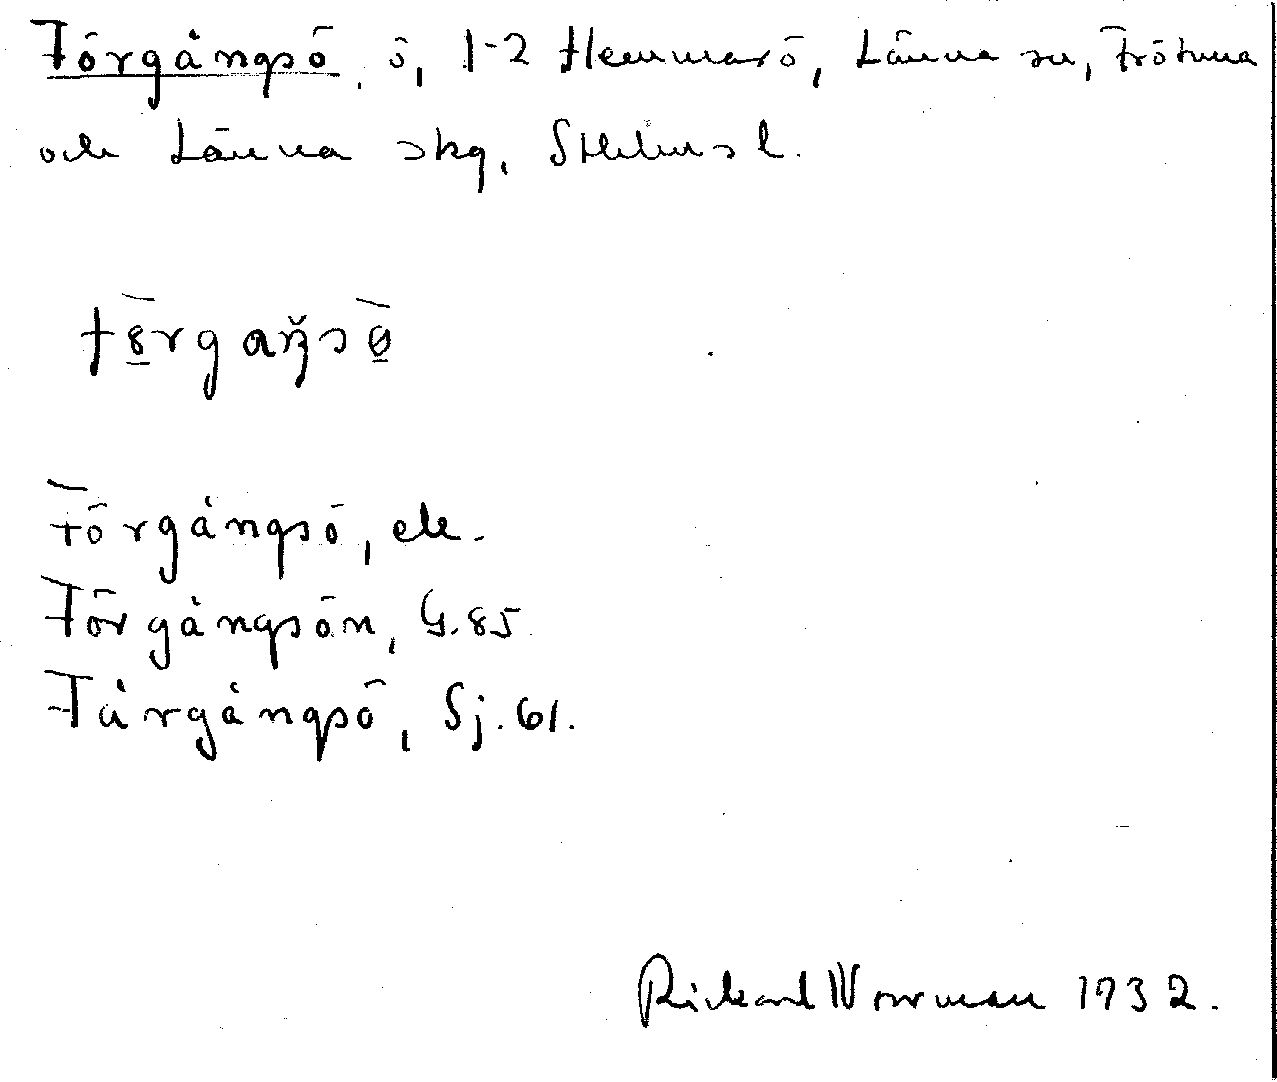 Förgångsö, ö, 1-2 Hemmarö, Länna sn, Frötuna
och Länna skg, Sthlms l.
Förgångsö, ek.
Förgångsön, G.85
Fårgångsö, Sj.61.
Rickard Norrman 1932.